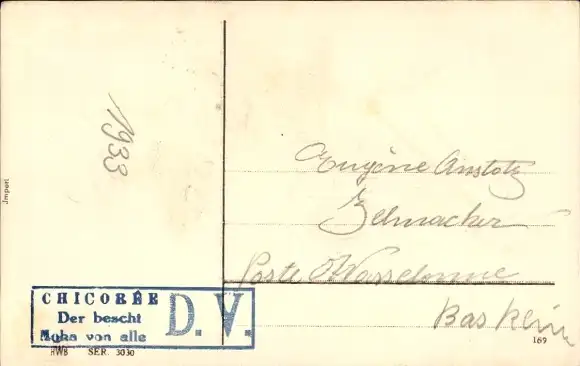 Import
1933
Eugène Anstotz
Zehnacker
Poste Wasselonne
Bas Rhin
CHICORÉE
Der bescht
Moka von alle
D. V.
HWB SER. 3030
169